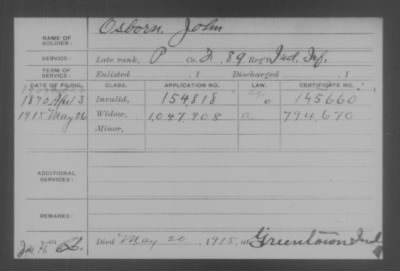 Osborn, John
NAME OF SOLDIER:
SERVICE: Late rank, P Co. F, 89 Reg't Ind. Inf.
TERM OF SERVICE: Enlisted , 1 Discharged , 1
DATE OF FILING. CLASS. APPLICATION NO. LAW. CERTIFICATE NO.
1870 Apl 3 Invalid, 154,818 145660
1915 May 26 Widow, 1,047,908 a 794,670
Minor,
ADDITIONAL SERVICES:
REMARKS:
Died May 20, 1915, at Greentown Ind